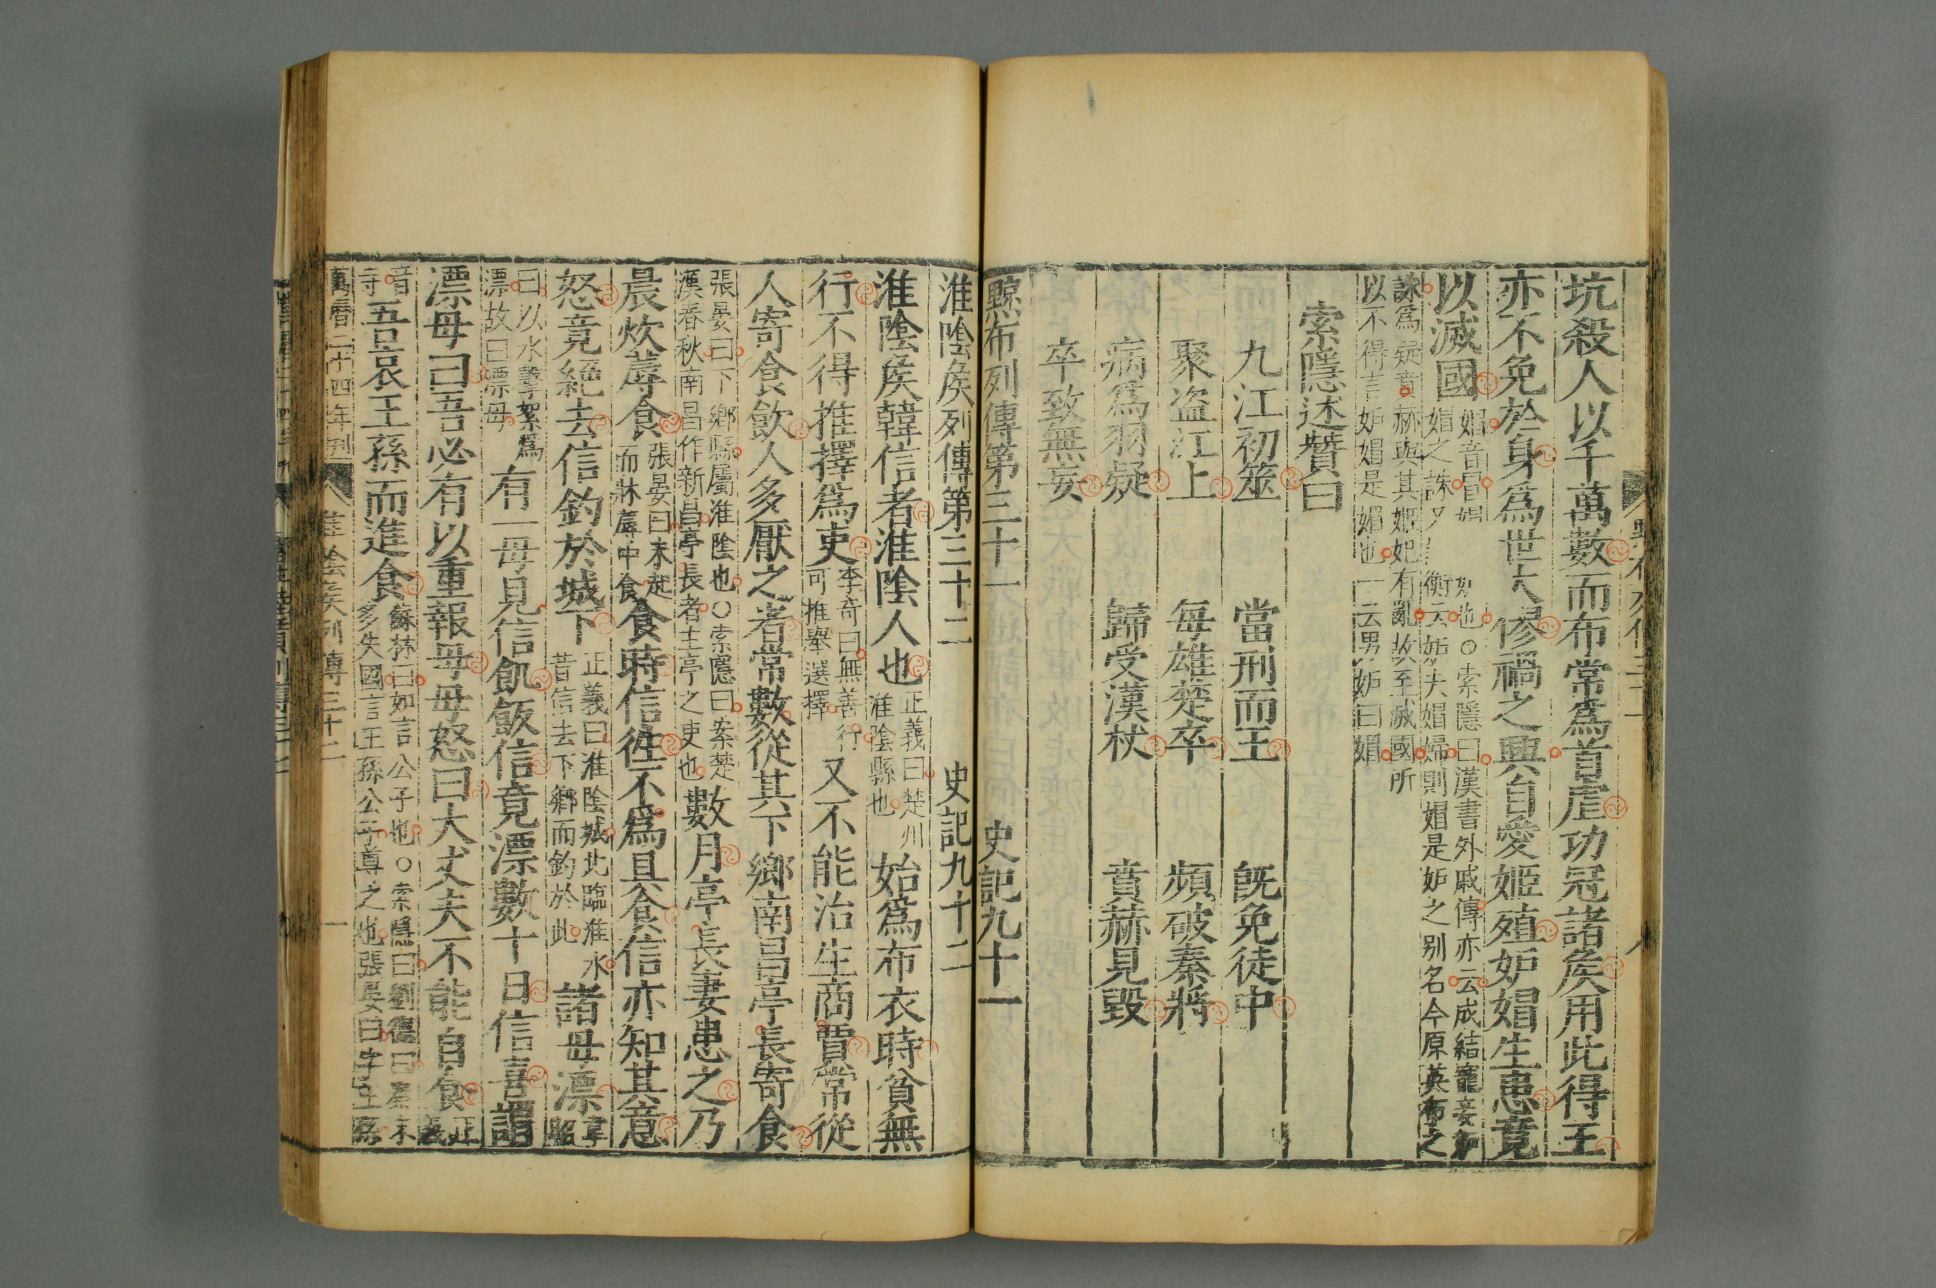 坑殺人以千萬數而布常為首虐功冠諸矦用此得王
亦不免於身為世大僇禍之興自愛姬殖妒媢生患竟
以滅國
媢音冒媢 妒也○索隱曰漢書外戚傳亦云成結寵妾妒
媢之誅又 衡云妒夫媢婦則媢是妒之别名今原英布之
誅為疑賁赫與其姬妃有亂故至滅國所
以不得言妒媢是媢也一云男妒曰媢
索隱述贊曰
九江初筮 當刑而王 旣免徒中
聚盜江上 每雄楚卒 頻破秦將
病為羽疑 歸受漢杖 賁赫見毀
卒致無妄
黥布列傳第三十一 史記九十一
淮陰矦列傳第三十二 史記九十二
淮陰矦韓信者淮陰人也
正義曰楚州
淮陰縣也
始為布衣時貧無
行不得推擇為吏
李奇曰無善行
可推舉選擇
又不能治生商賈常從
人寄食飲人多厭之者常數從其下鄉南昌亭長寄食
張晏曰下鄉縣屬淮陰也○索隱曰案楚
漢春秋南昌作新昌亭長者主亭之吏也
數月亭長妻患之乃
晨炊蓐食
張晏曰未起
而牀蓐中食
食時信往不為具食信亦知其意
怒竟絕去信釣於城下
正義曰淮陰城北臨淮水
昔信去下鄉而釣於此
諸母漂
韋
昭
曰以水擊絮為
漂故曰漂母
有一母見信飢飯信竟漂數十日信喜謂
漂母曰吾必有以重報母母怒曰大丈夫不能自食
正
義
音
寺
吾哀王孫而進食
蘇林曰如言公子也○索隱曰劉德曰秦末
多失國言王孫公子尊之也張晏曰字王孫
萬曆二十四年刊 淮陰矦列傳三十二 一